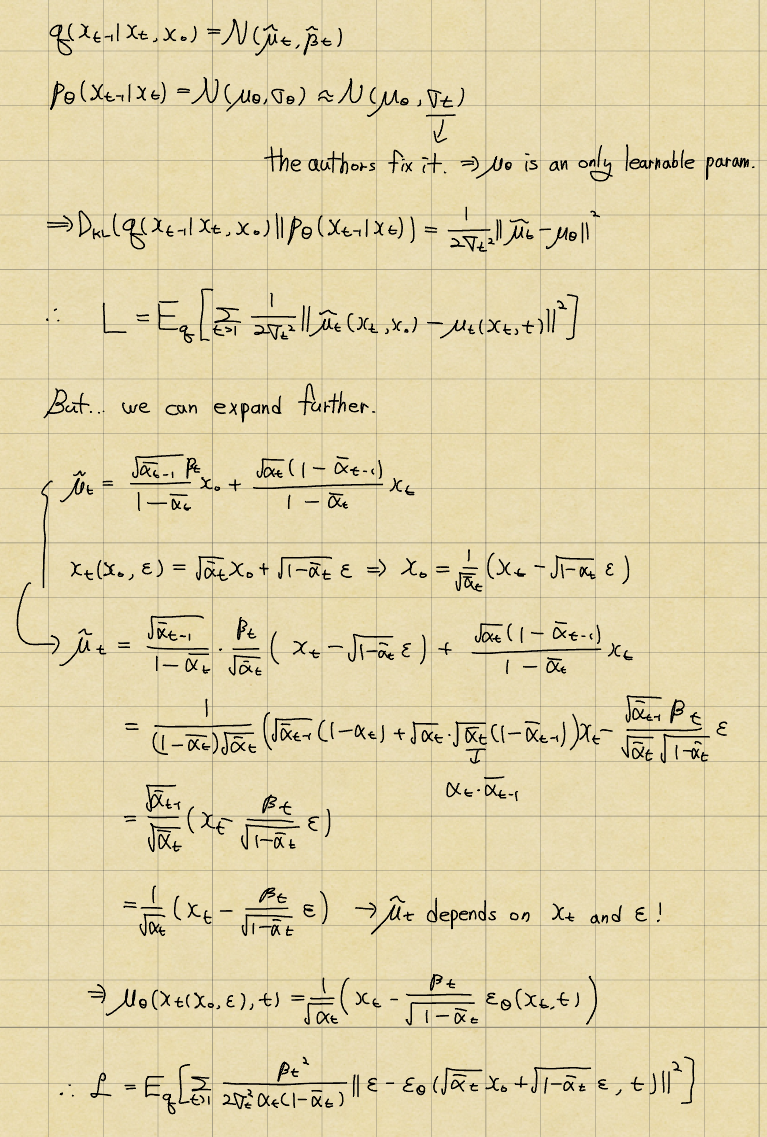 q(x_{t-1}|x_t, x_0) = N(μ̃_t, β̃_t)
p_θ(x_{t-1}|x_t) = N(μ_θ, σ_θ) ≈ N(μ_θ, σ_t)
↓
the authors fix it. ⇒ μ_θ is an only learnable param.
⇒ D_{KL}(q(x_{t-1}|x_t, x_0) || p_θ(x_{t-1}|x_t)) = \frac{1}{2σ_t^2} || μ̃_t - μ_θ ||^2
∴ L = E_q[ \sum_{t>1} \frac{1}{2σ_t^2} || μ̃_t(x_t, x_0) - μ_t(x_t, t) ||^2 ]
But... we can expand further.
μ̃_t = \frac{\sqrt{ᾱ_{t-1}} β_t}{1 - ᾱ_t} x_0 + \frac{\sqrt{α_t}(1 - ᾱ_{t-1})}{1 - ᾱ_t} x_t
x_t(x_0, ε) = \sqrt{ᾱ_t} x_0 + \sqrt{1-ᾱ_t} ε ⇒ x_0 = \frac{1}{\sqrt{ᾱ_t}} (x_t - \sqrt{1-ᾱ_t} ε)
→ μ̃_t = \frac{\sqrt{ᾱ_{t-1}}}{1 - ᾱ_t} · \frac{β_t}{\sqrt{ᾱ_t}} ( x_t - \sqrt{1-ᾱ_t} ε ) + \frac{\sqrt{α_t}(1 - ᾱ_{t-1})}{1 - ᾱ_t} x_t
= \frac{1}{(1-ᾱ_t)\sqrt{ᾱ_t}} (\sqrt{ᾱ_{t-1}} (1-α_t) + \sqrt{α_t} · \sqrt{ᾱ_t} (1-ᾱ_{t-1})) x_t - \frac{\sqrt{ᾱ_{t-1}} β_t}{\sqrt{ᾱ_t} \sqrt{1-ᾱ_t}} ε
↓
α_t · ᾱ_{t-1}
= \frac{\sqrt{ᾱ_{t-1}}}{\sqrt{ᾱ_t}} (x_t - \frac{β_t}{\sqrt{1-ᾱ_t}} ε)
= \frac{1}{\sqrt{α_t}} (x_t - \frac{β_t}{\sqrt{1-ᾱ_t}} ε) → μ̃_t depends on x_t and ε !
⇒ μ_θ(x_t(x_0, ε), t) = \frac{1}{\sqrt{α_t}} (x_t - \frac{β_t}{\sqrt{1-ᾱ_t}} ε_θ(x_t, t))
∴ L = E_q[ \sum_{t>1} \frac{β_t^2}{2σ_t^2 α_t(1-ᾱ_t)} || ε - ε_θ(\sqrt{ᾱ_t} x_0 + \sqrt{1-ᾱ_t} ε, t) ||^2 ]